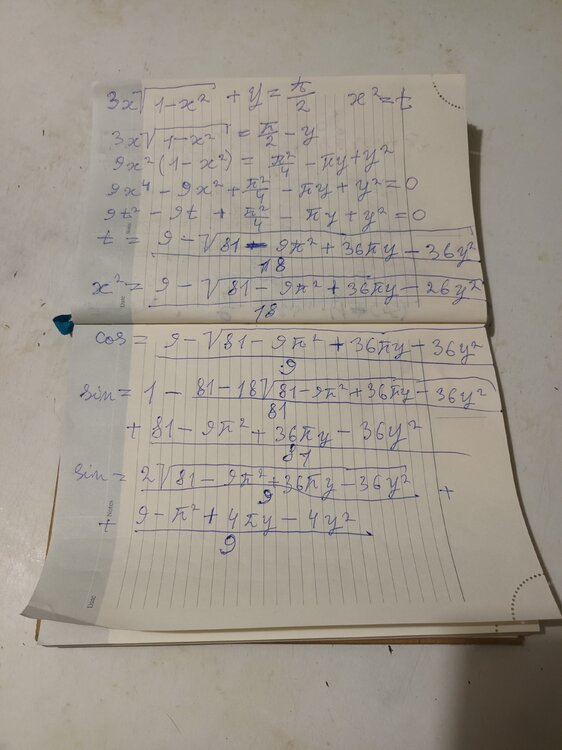 3x√(1-x²) + y = π/2   x² = t
3x√(1-x²) = π/2 - y
9x²(1-x²) = π²/4 - πy + y²
9x⁴ - 9x² + π²/4 - πy + y² = 0
9t² - 9t + π²/4 - πy + y² = 0
t = (9 - √(81 - 9π² + 36πy - 36y²))/18
x² = (9 - √(81 - 9π² + 36πy - 26y²))/18
cos = (9 - √(81 - 9π² + 36πy - 36y²))/9
sin = 1 - (81 - 18√(81 - 9π² + 36πy - 36y²))/81
+ (81 - 9π² + 36πy - 36y²)/81
sin = (2√(81 - 9π² + 36πy - 36y²))/9 +
+ (9 - π² + 4πy - 4y²)/9
Notes
Date
Notes
Date